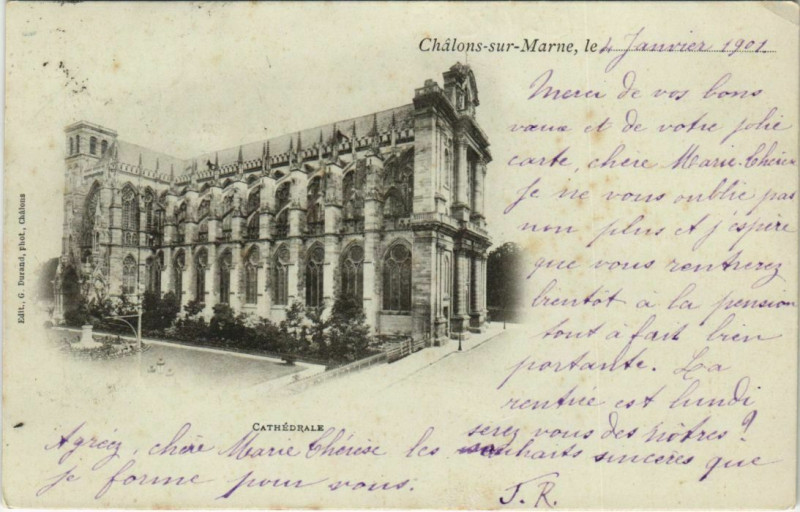 Châlons-sur-Marne, le 4 Janvier 1901.
Merci de vos bons
vœux et de votre jolie
carte, chère Marie-Thérèse
Je ne vous oublie pas
non plus et j'espère
que vous rentrerez
bientôt à la pension
tout à fait bien
portante. La
rentrée est lundi
serez vous des nôtres?
Agréez, chère Marie Thérèse les souhaits sincères que
je forme pour vous.
J. R.
Cathédrale
Edit., G. Durand, phot., Châlons